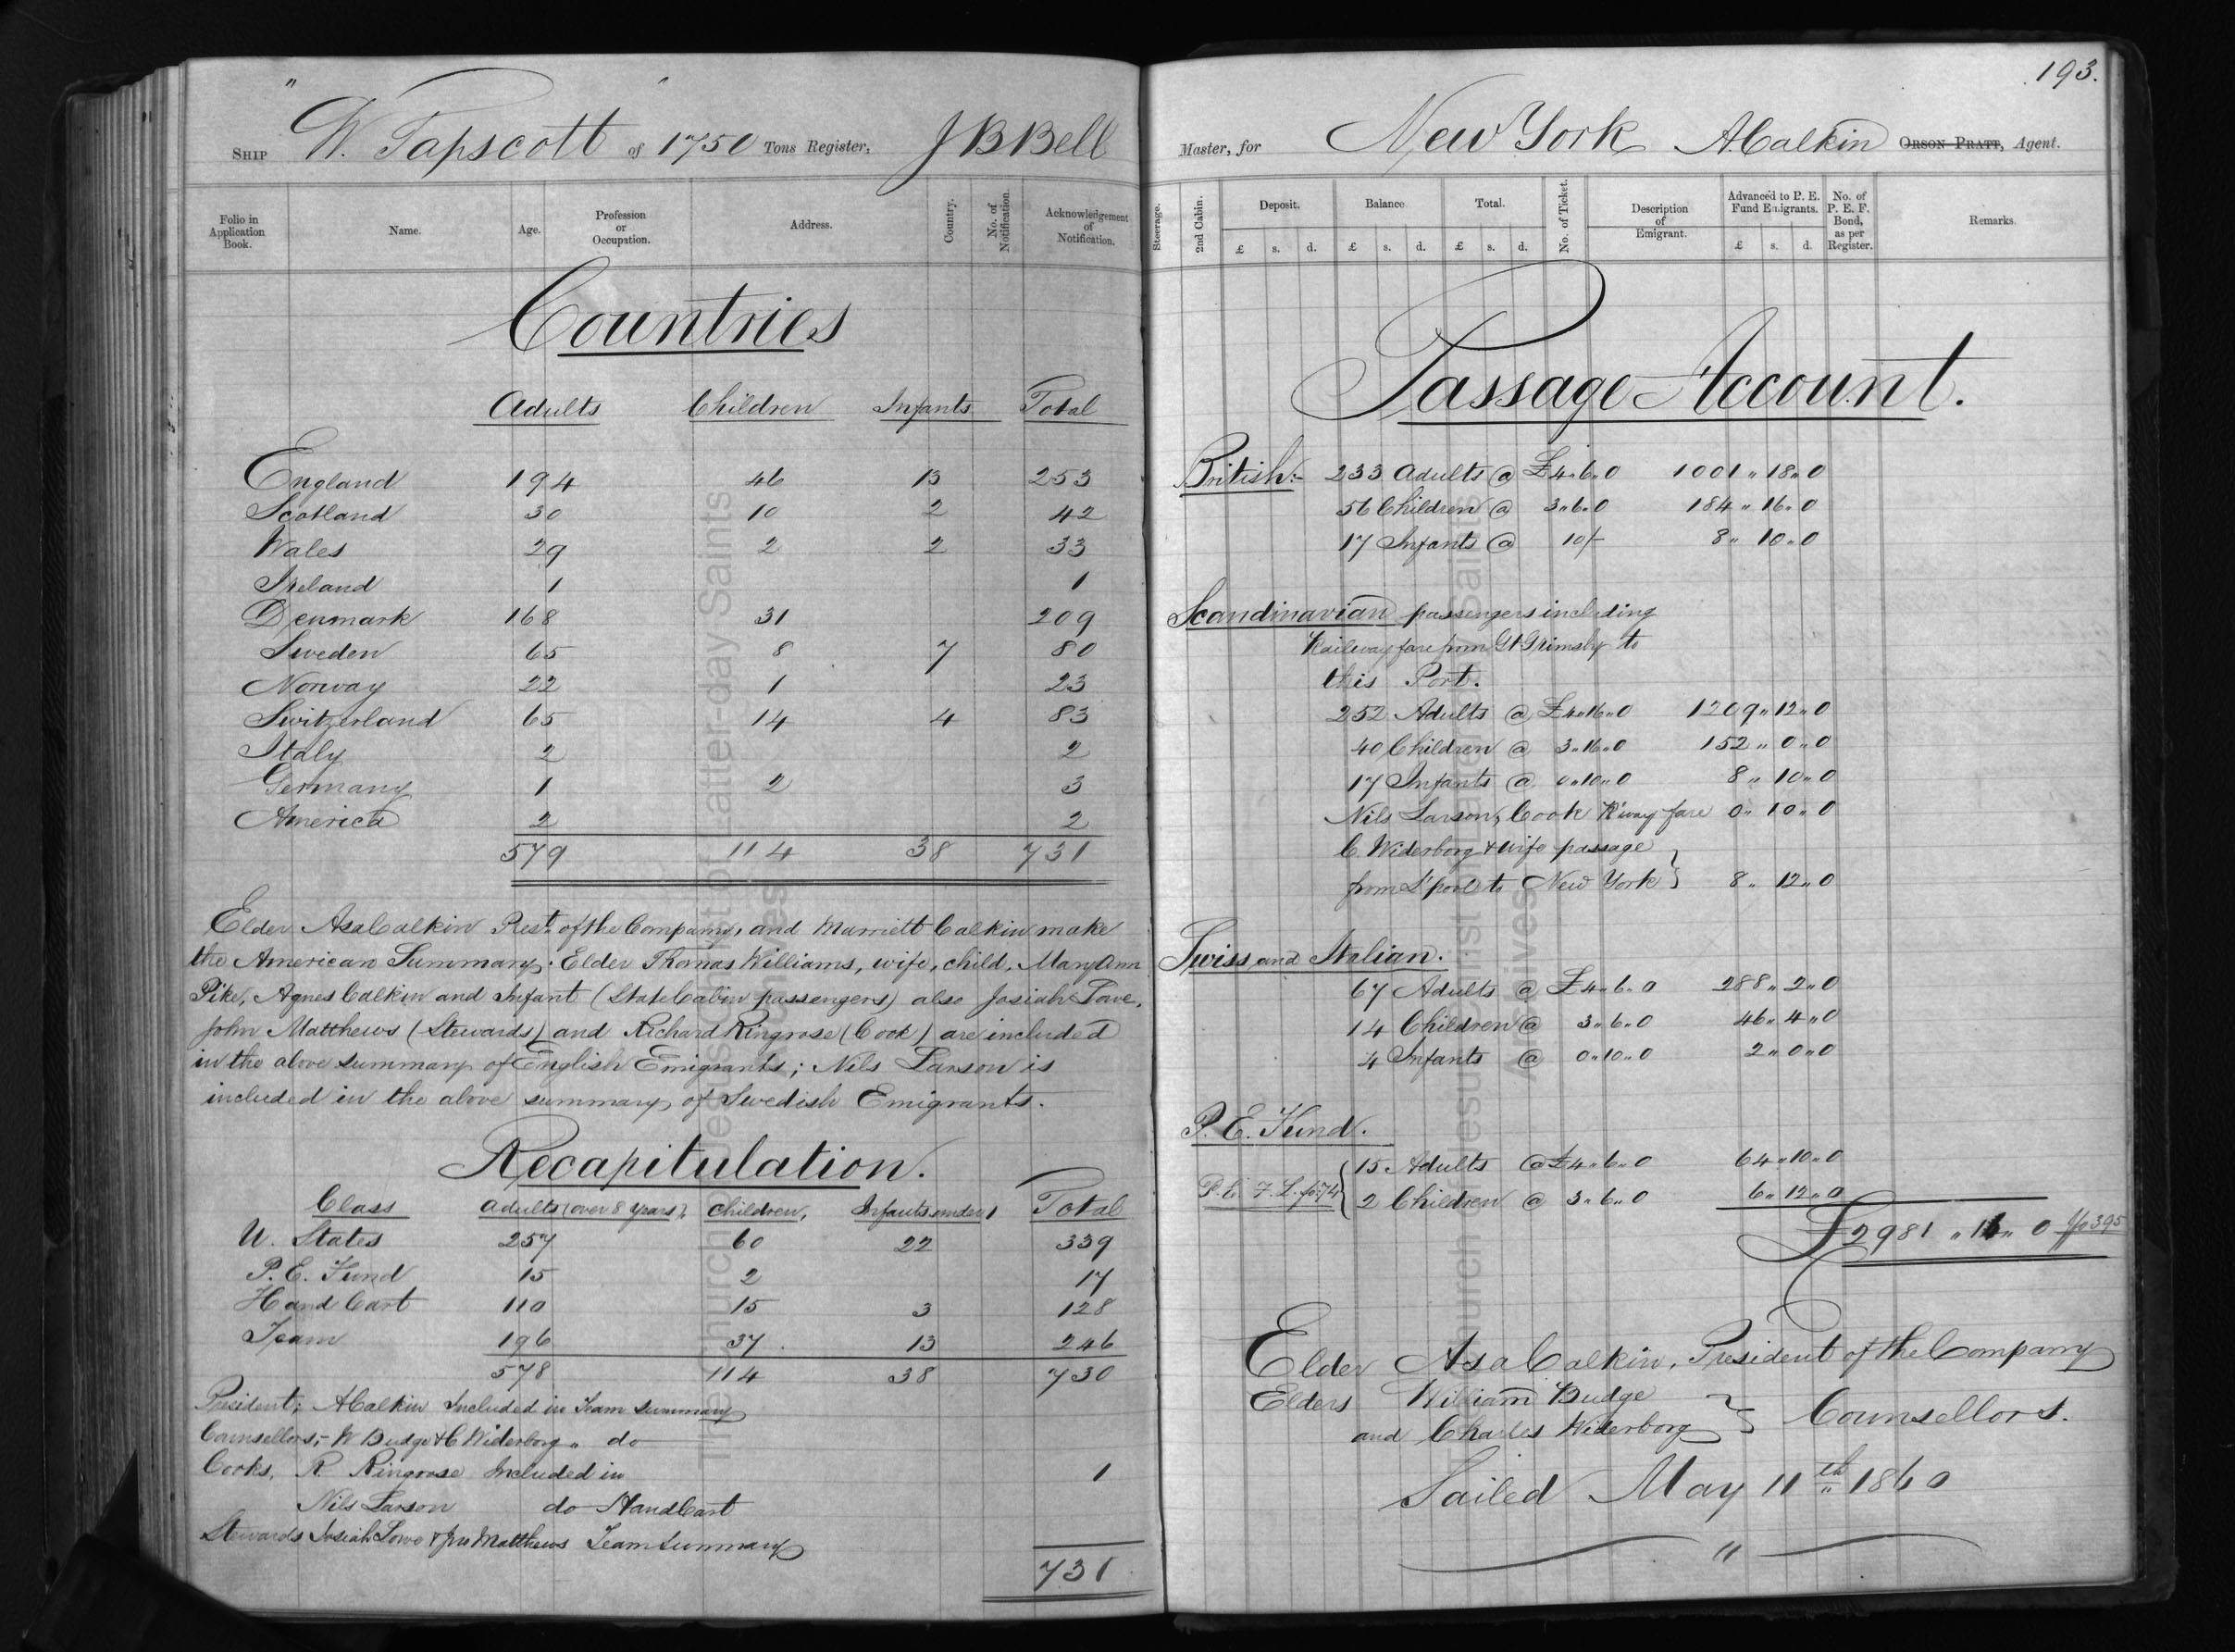 193.
SHIP "W. Tapscott" of 1750 Tons Register, J B Bell Master, for New York A Calkin ORSON PRATT, Agent.
Folio in Application Book. Name. Age. Profession or Occupation. Address. Country. No. of Notification. Acknowledgement of Notification. Steerage. 2nd Cabin. Deposit. £ s. d. Balance £ s. d. Total. £ s. d. No. of Ticket. Description of Emigrant. Advanced to P. E. Fund Emigrants. £ s. d. No. of P. E. F. Bond, as per Register. Remarks.
Countries
Adults Children Infants Total
England 194 46 13 253
Scotland 30 10 2 42
Wales 29 2 2 33
Ireland 1 1
Denmark 168 31 209
Sweden 65 8 7 80
Norway 22 1 23
Switzerland 65 14 4 83
Italy 2 2
Germany 1 2 3
America 2 2
579 114 38 731
Elder Asa Calkin Prest. of the Company, and Marriett Calkin make
the American Summary. Elder Thomas Williams, wife, child, Mary Ann
Pike, Agnes Calkin and Infant (State Cabin passengers) also Josiah
John Matthews (Stewards) and Richard Ringrose (Cook) are included
in the above summary of English Emigrants; Nils Larson is
included in the above summary of Swedish Emigrants.
Recapitulation.
Class Adults (over 8 years), Children, Infants under 1 Total
U. States 257 60 22 339
P. E. Fund 15 2 17
Hand Cart 110 15 3 128
Team 196 37 13 246
578 114 38 730
President; A Calkin Included in Team summary
Counsellors;- W Budge & C Widerborg " do
Cooks, R Ringrose Included in 1
Nils Larson do HandCart
Stewards Josiah Lowe & Jno Matthews Team Summary
731
Passage Account.
British:- 233 Adults @ £4"6"0 1001"18"0
56 Children @ 3"6"0 184"16"0
17 Infants @ 10/- 8"10"0
Scandinavian passengers including
Railway fare from Gt Grimsby to
this Port.
252 Adults @ £4"16"0 1209"12"0
40 Children @ 3"16"0 152"0"0
17 Infants @ 0"10"0 8"10"0
Nils Larson, Cook R'way fare 0"10"0
C. Widerborg & wife passage
from L'pool to New York } 8"12"0
Swiss and Italian.
67 Adults @ £4"6"0 288"2"0
14 Children @ 3"6"0 46"4"0
4 Infants @ 0"10"0 2"0"0
P. E. Fund.
15 Adults @ £4"6"0 64"10"0
P. E. F. L. fo. 74 { 2 Children @ 3"6"0 6"12"0
£2981 0 395
Elder Asa Calkin, President of the Company
Elders William Budge
and Charles Widerborg } Counsellors.
Sailed May 11th 1860